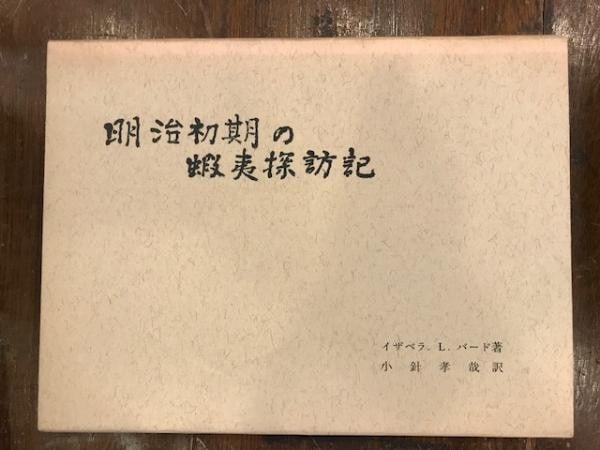 明治初期の
蝦夷探訪記
イザベラ. L. バード著
小針孝哉訳